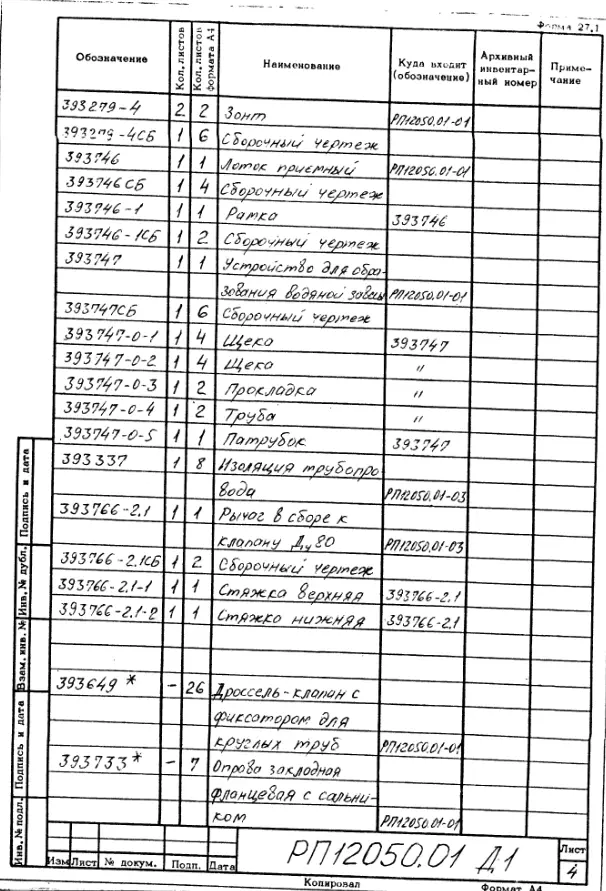 Форма 27.1
Обозначение Кол. листов Кол. листов формата А4 Наименование Куда входит (обозначение) Архивный инвентарный номер Примечание
393279-4 2 2 Зонт РП12050.01-01
393279-4СБ 1 6 Сборочный чертеж
393746 1 1 Лоток приемный РП12050.01-01
393746СБ 1 4 Сборочный чертеж
393746-1 1 1 Рамка 393746
393746-1СБ 1 2 Сборочный чертеж
393747 1 1 Устройство для обра-
зования водяной завесы РП12050.01-01
393747СБ 1 6 Сборочный чертеж
393747-0-1 1 4 Щека 393747
393747-0-2 1 4 Щека "
393747-0-3 1 2 Прокладка "
393747-0-4 1 2 Труба "
393747-0-5 1 1 Патрубок 393747
393337 1 8 Изоляция трубопро-
вода РП12050.01-03
393766-2.1 1 1 Рычаг в сборе к
клапану Ду80 РП12050.01-03
393766-2.1СБ 1 2 Сборочный чертеж
393766-2.1-1 1 1 Стяжка верхняя 393766-2.1
393766-2.1-2 1 1 Стяжка нижняя 393766-2.1
393649* - 26 Дроссель-клапан с
фиксатором для
круглых труб РП12050.01-01
393733* - 7 Оправа закладная
фланцевая с сальни-
ком РП12050.01-01
Инв. № подл. Подпись и дата Взам. инв. № Инв. № дубл. Подпись и дата
Изм Лист № докум. Подп. Дата
РП12050.01 Д1
Лист
4
Копировал Формат А4